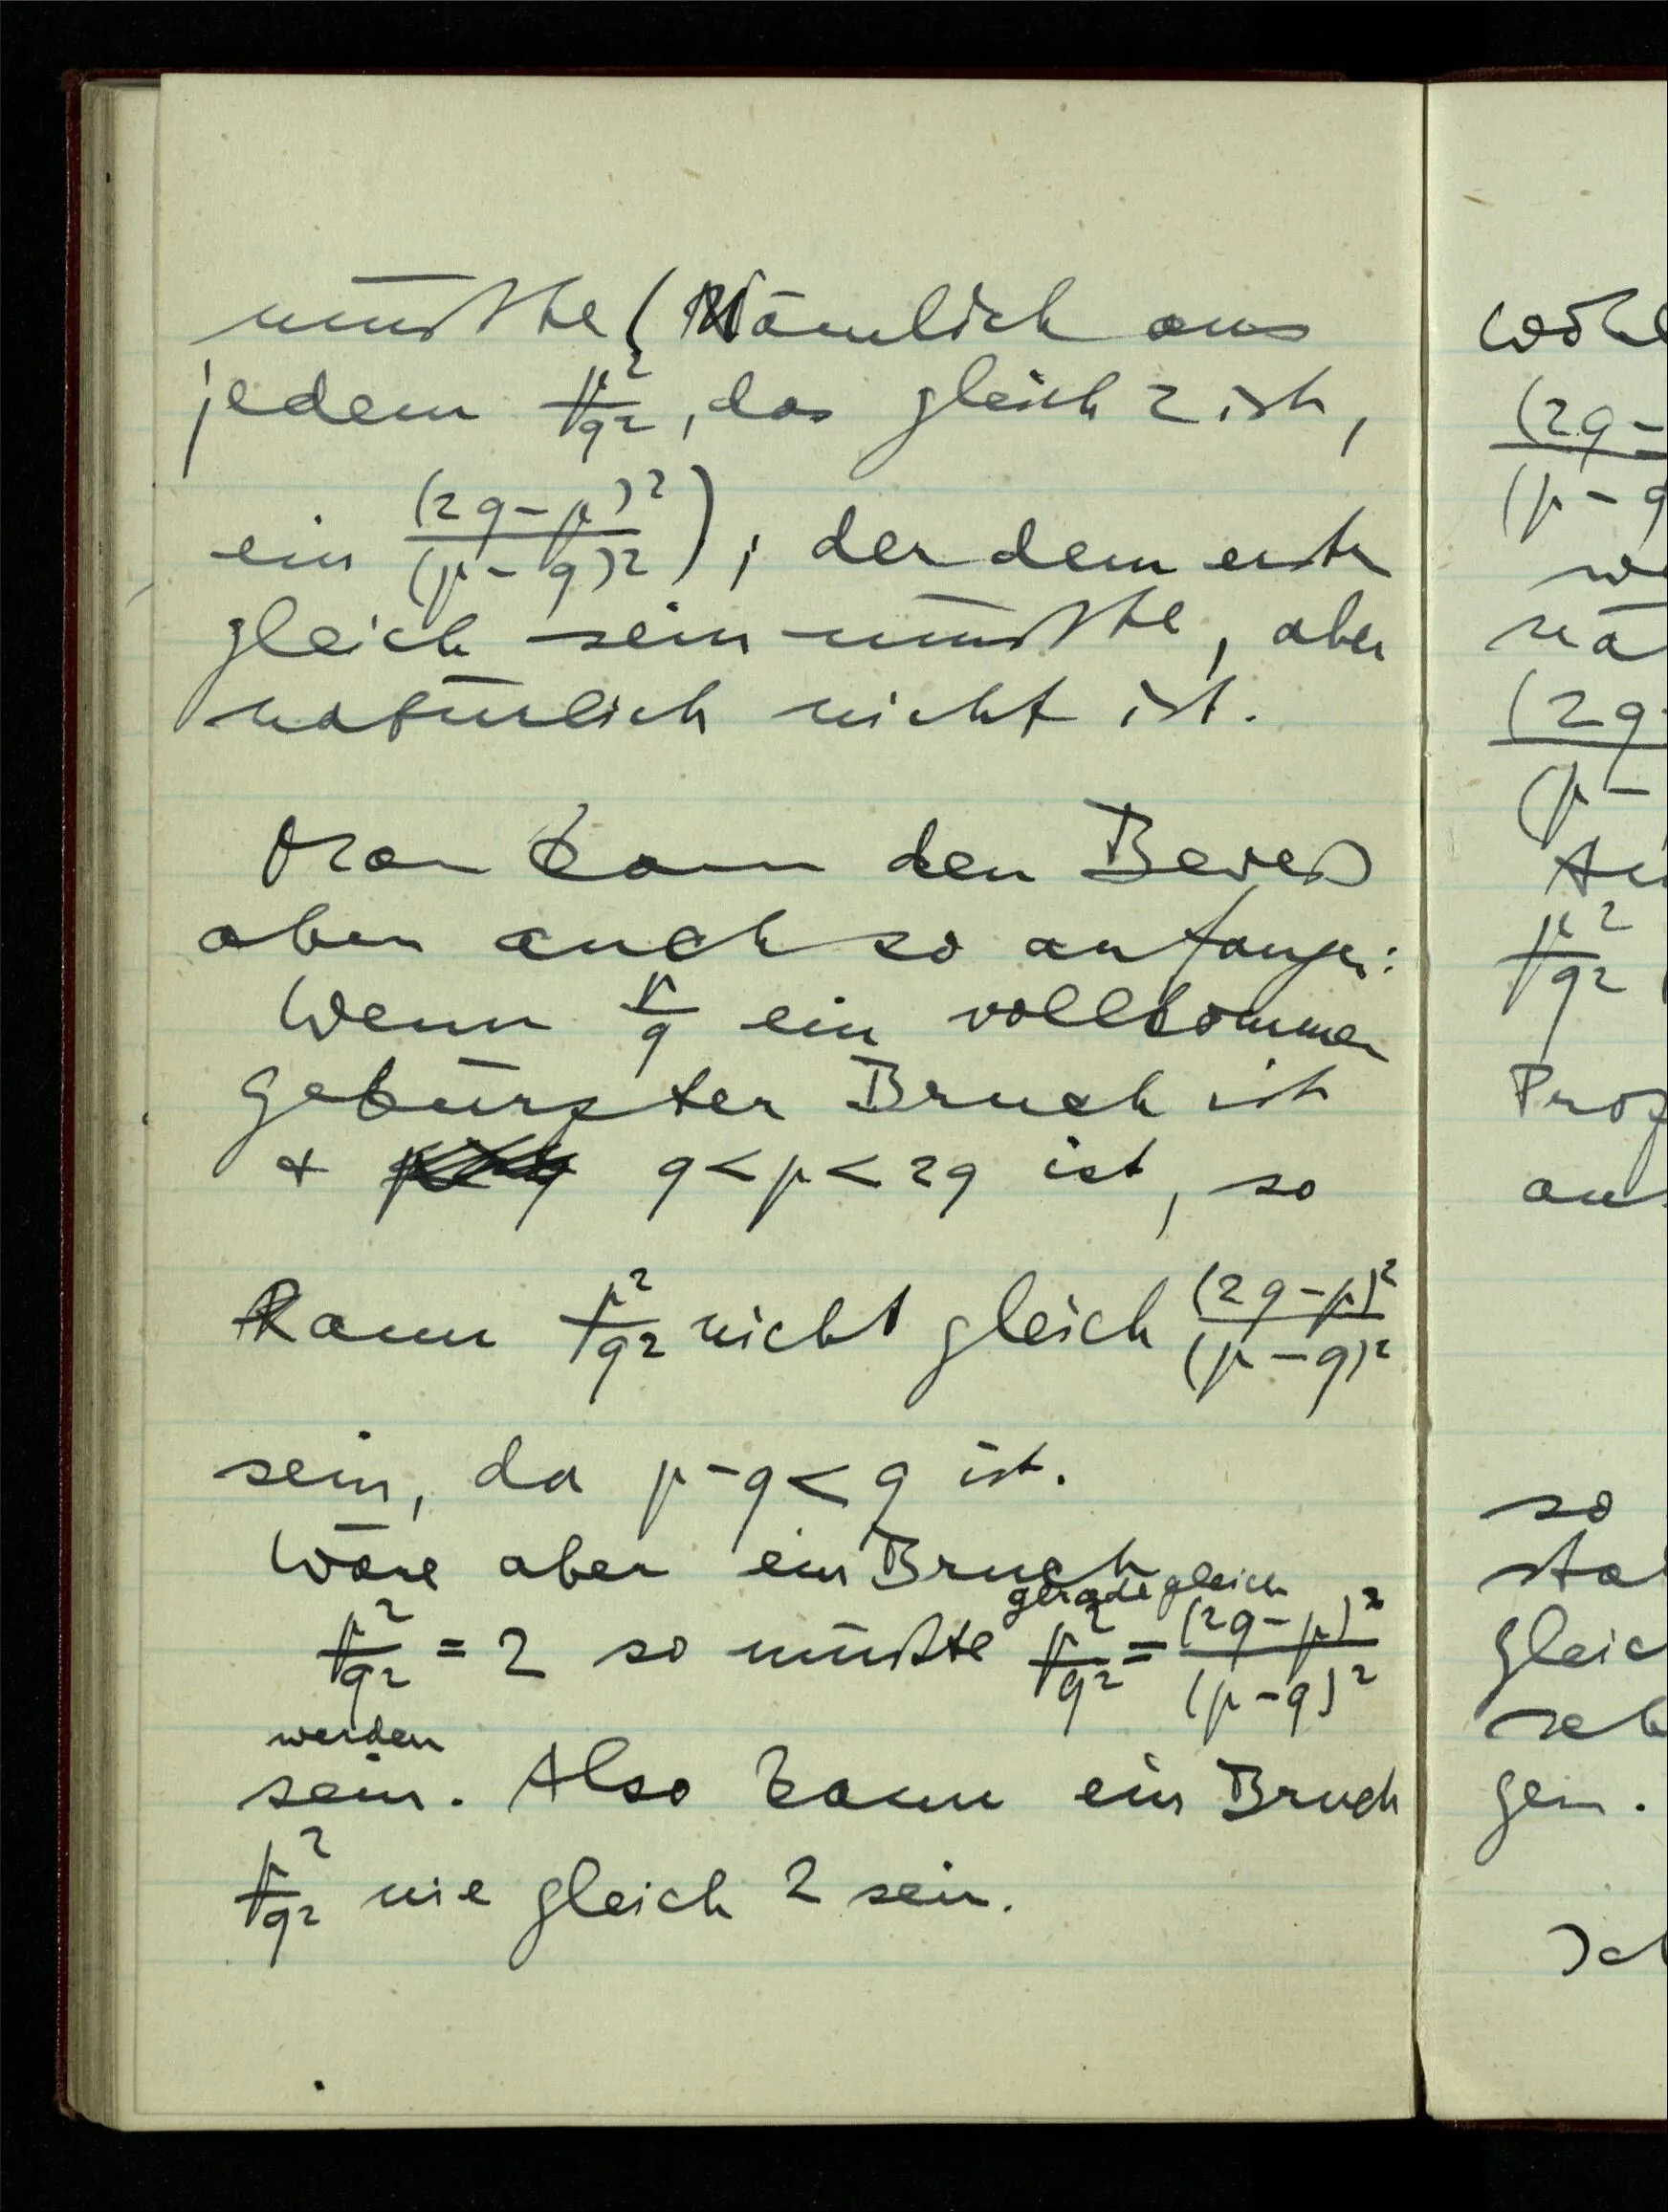 müsste (Nämlich aus
jedem p²/q², das gleich 2 ist,
ein (2q-p)²/(p-q)²), der dem erste
gleich sein müsste, aber
natürlich nicht ist.
Man kann den Beweis
aber auch so anfangen:
Wenn p/q ein vollkommen
gekürzter Bruch ist
+ q<p<2q ist, so
kann p²/q² nicht gleich (2q-p)²/(p-q)²
sein, da p-q<q ist.
Wäre aber ein Bruch
gerade gleich
p²/q² = 2 so müsste p²/q² = (2q-p)²/(p-q)²
werden
sein. Also kann ein Bruch
p²/q² nie gleich 2 sein.
(2q-
(p-q
nä
(2q-
(p-
p²/q²
so
gen.